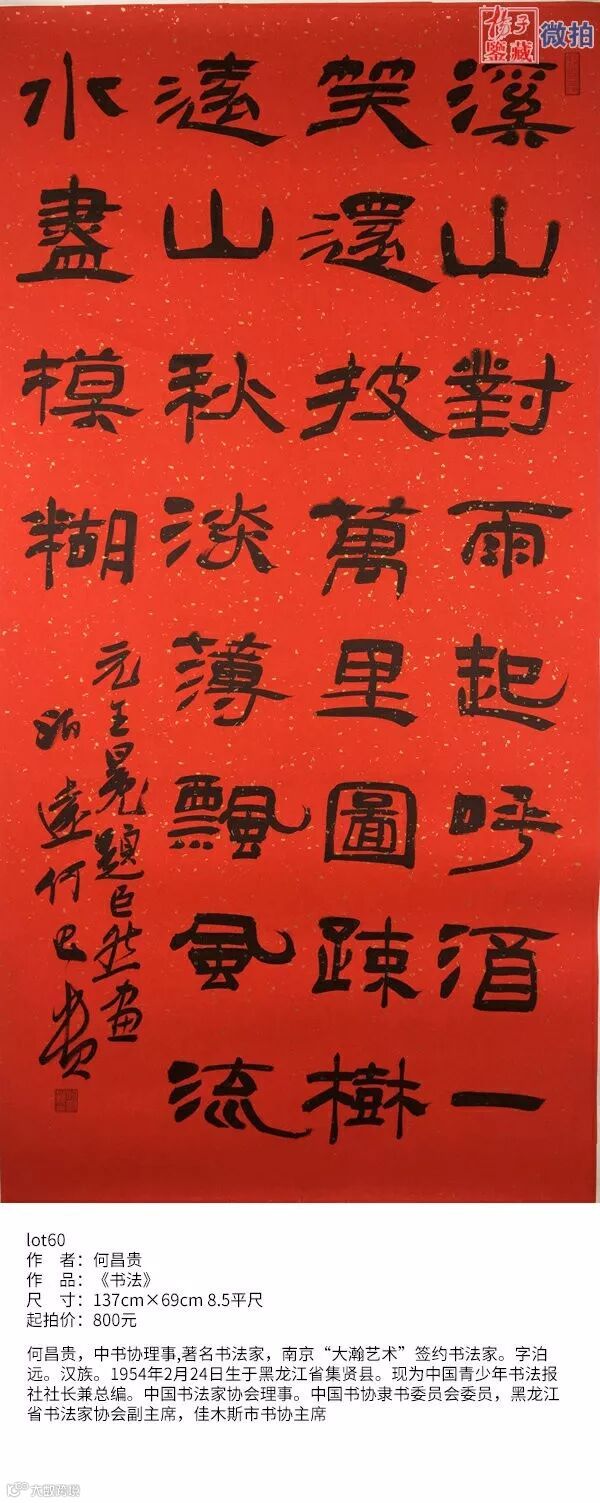 楊子
鑒藏
微拍
溪山對雨起呼酒一
笑還披萬里圖疎樹
遠山秋淡薄飄風流
水盡模糊
元王冕題巨然畫
泊遠何昌貴
lot60
作 者：何昌贵
作 品：《书法》
尺 寸：137cm×69cm 8.5平尺
起拍价：800元
何昌贵，中书协理事,著名书法家，南京“大瀚艺术”签约书法家。字泊
远。汉族。1954年2月24日生于黑龙江省集贤县。现为中国青少年书法报
社社长兼总编。中国书法家协会理事。中国书协隶书委员会委员，黑龙江
省书法家协会副主席，佳木斯市书协主席